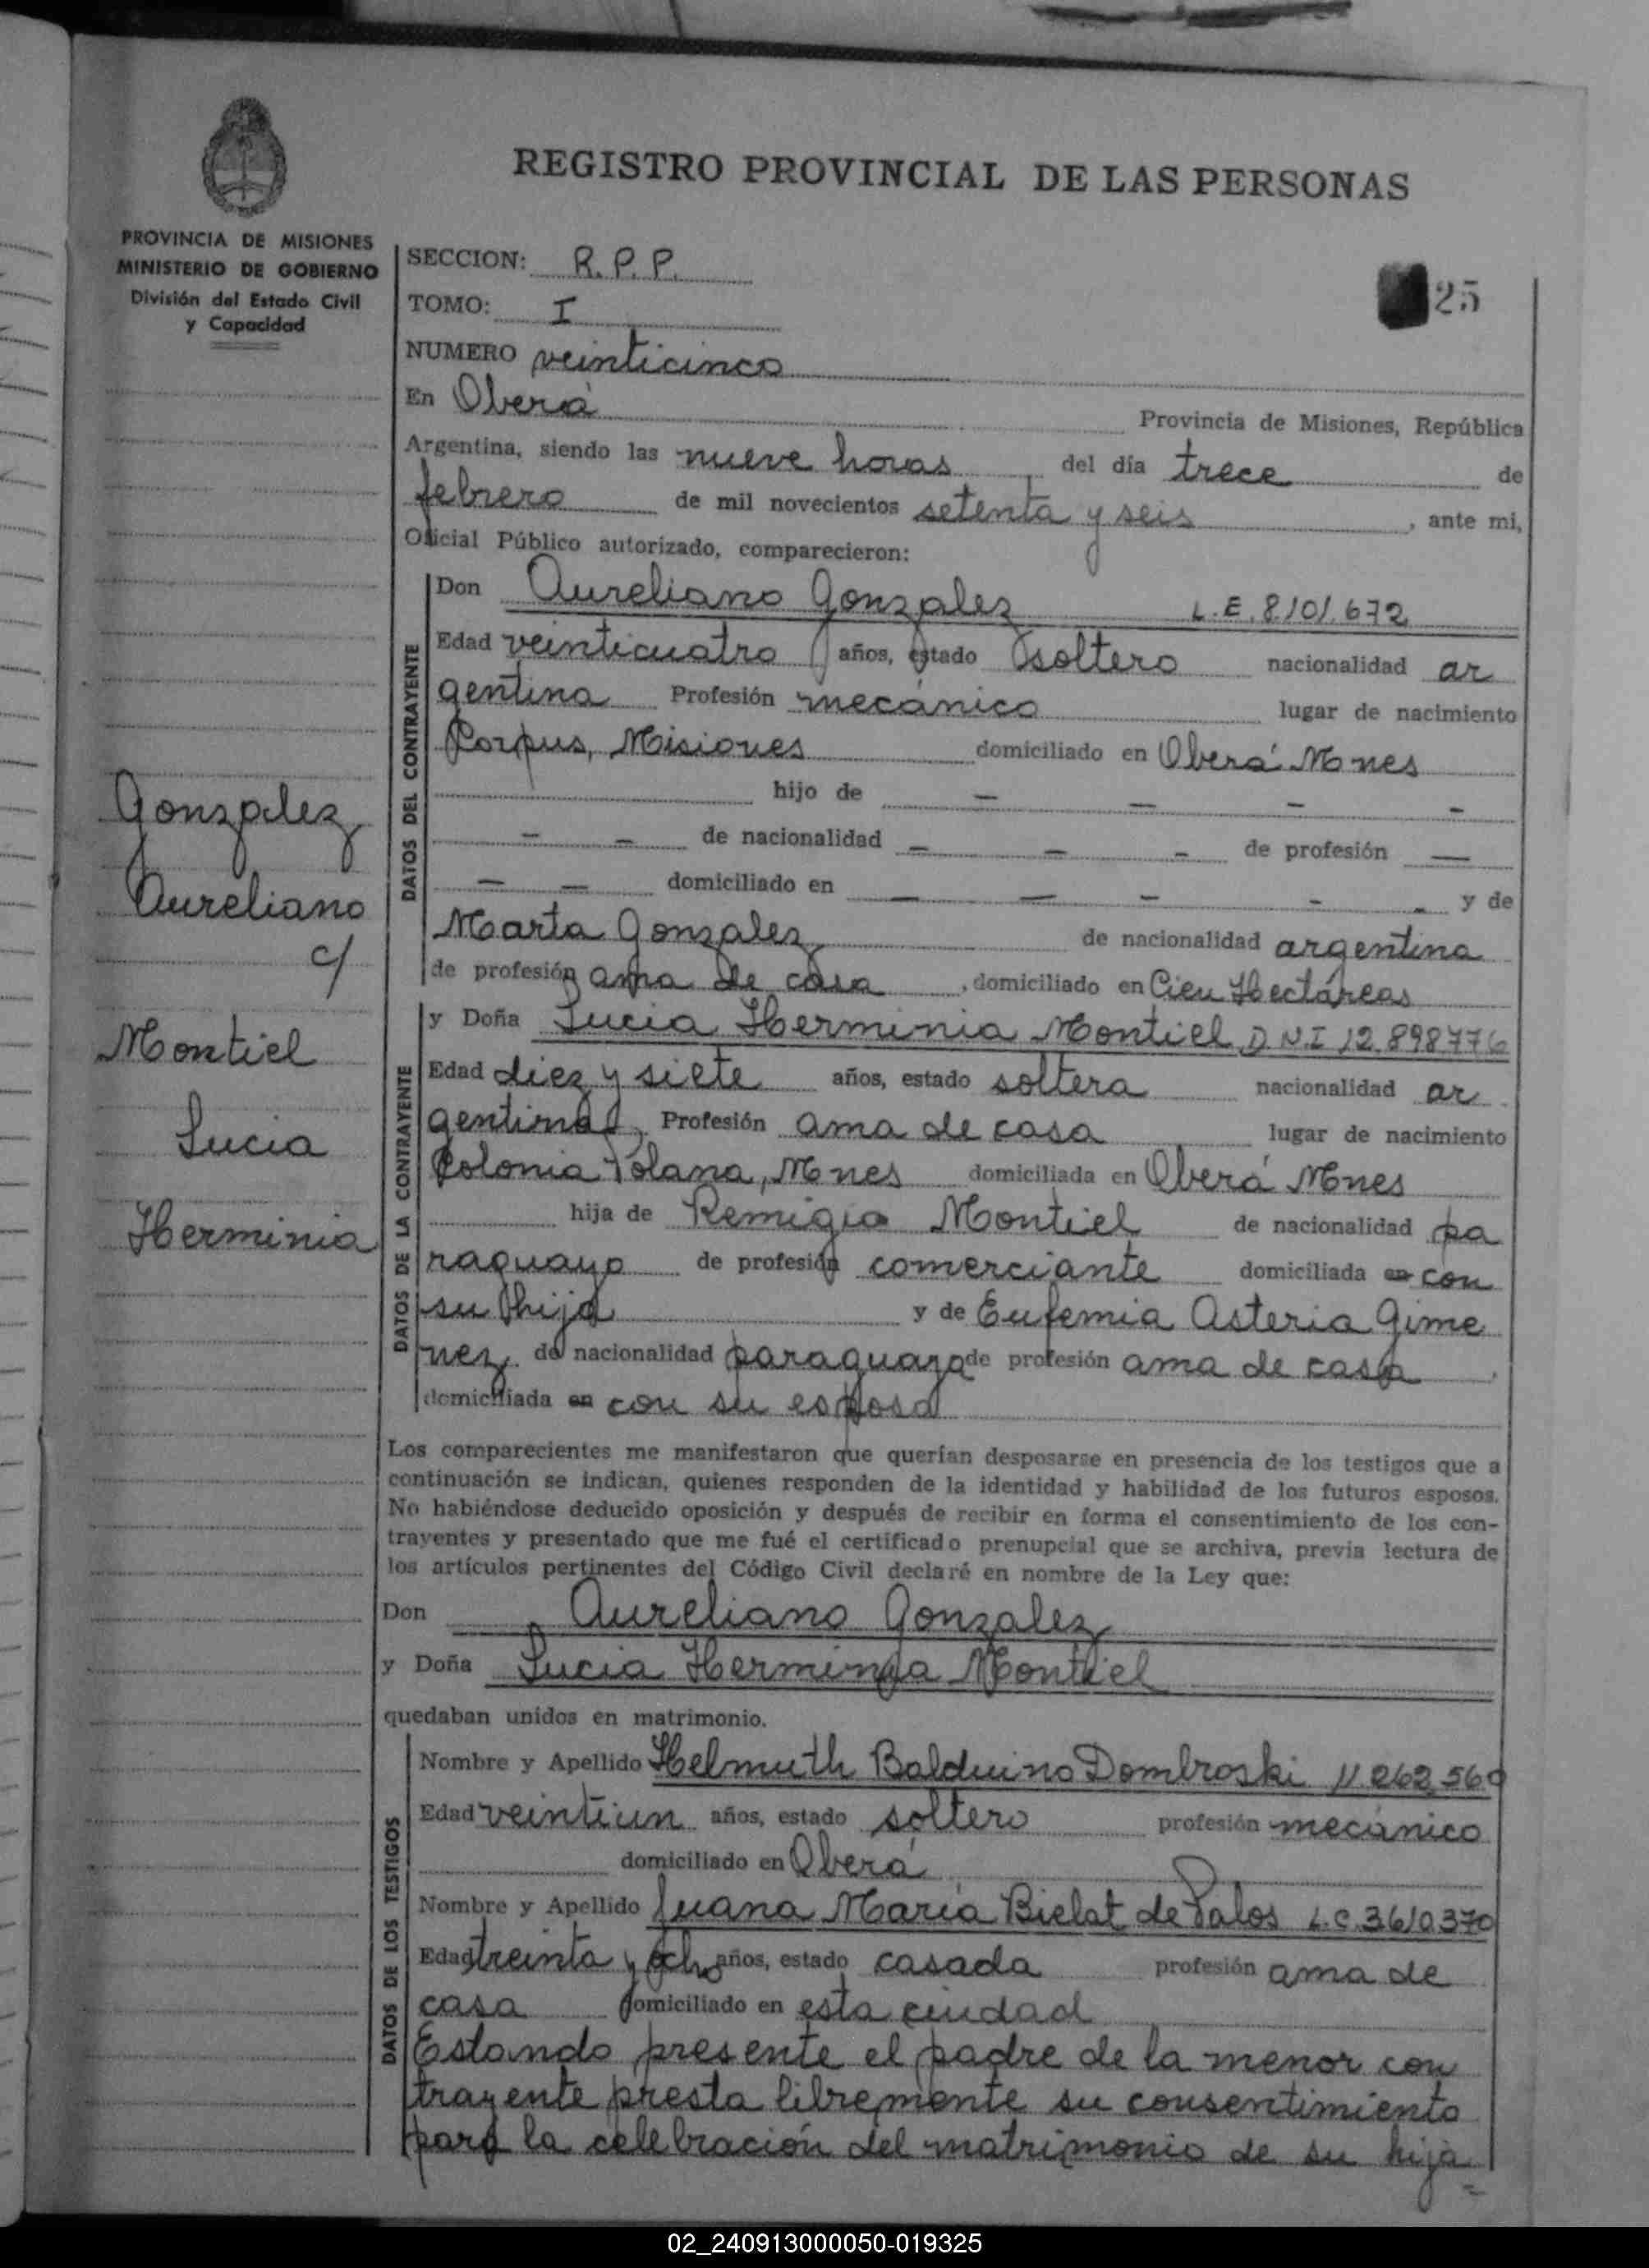 REGISTRO PROVINCIAL DE LAS PERSONAS
PROVINCIA DE MISIONES
MINISTERIO DE GOBIERNO
División del Estado Civil
y Capacidad
SECCION: R.P.P.
25
TOMO: I
NUMERO veinticinco
En Oberá Provincia de Misiones, República
Argentina, siendo las nueve horas del día trece de
febrero de mil novecientos setenta y seis, ante mi,
Oficial Público autorizado, comparecieron:
DATOS DEL CONTRAYENTE
Don Aureliano Gonzalez L.E. 8.101.672
Edad veinticuatro años, estado soltero nacionalidad ar
gentina Profesión mecánico lugar de nacimiento
Corpus, Misiones domiciliado en Oberá Mnes
hijo de — — — —
— — de nacionalidad — — — de profesión —
— — domiciliado en — — — — — y de
Marta Gonzalez de nacionalidad argentina
de profesión ama de casa, domiciliado en Cien Hectáreas
Gonzalez
Aureliano
c/
Montiel
Lucia
Herminia
DATOS DE LA CONTRAYENTE
y Doña Lucia Herminia Montiel D.N.I 12.898776
Edad diez y siete años, estado soltera nacionalidad ar
gentina, Profesión ama de casa lugar de nacimiento
Colonia Polana, Mnes domiciliada en Oberá Mnes
hija de Remigio Montiel de nacionalidad pa
raguayo de profesión comerciante domiciliada en con
su hija y de Eufemia Asteria Gime
nez de nacionalidad paraguaya de profesión ama de casa
domiciliada en con su esposo
Los comparecientes me manifestaron que querían desposarse en presencia de los testigos que a
continuación se indican, quienes responden de la identidad y habilidad de los futuros esposos.
No habiéndose deducido oposición y después de recibir en forma el consentimiento de los con-
trayentes y presentado que me fué el certificado prenupcial que se archiva, previa lectura de
los artículos pertinentes del Código Civil declaré en nombre de la Ley que:
Don Aureliano Gonzalez
y Doña Lucia Herminia Montiel
quedaban unidos en matrimonio.
DATOS DE LOS TESTIGOS
Nombre y Apellido Helmuth Balduino Dombroski 11.262.560
Edad veintiun años, estado soltero profesión mecánico
domiciliado en Oberá
Nombre y Apellido Juana María Bielat de Palos L.C. 3.610.370
Edad treinta y ocho años, estado casada profesión ama de
casa domiciliado en esta ciudad
Estando presente el padre de la menor con
trayente presta libremente su consentimiento
para la celebración del matrimonio de su hija =
02_240913000050-019325